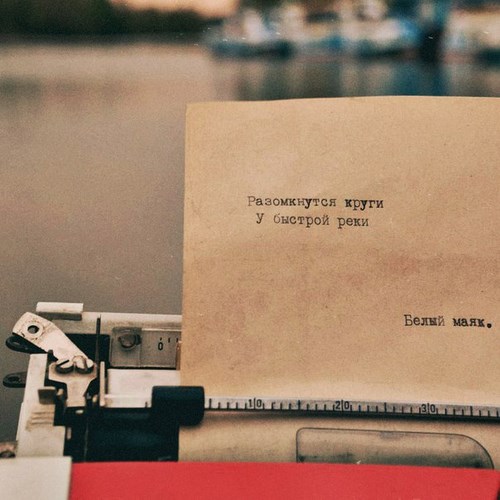 Разомкнутся круги
У быстрой реки
Белый маяк.
0
10 20 30